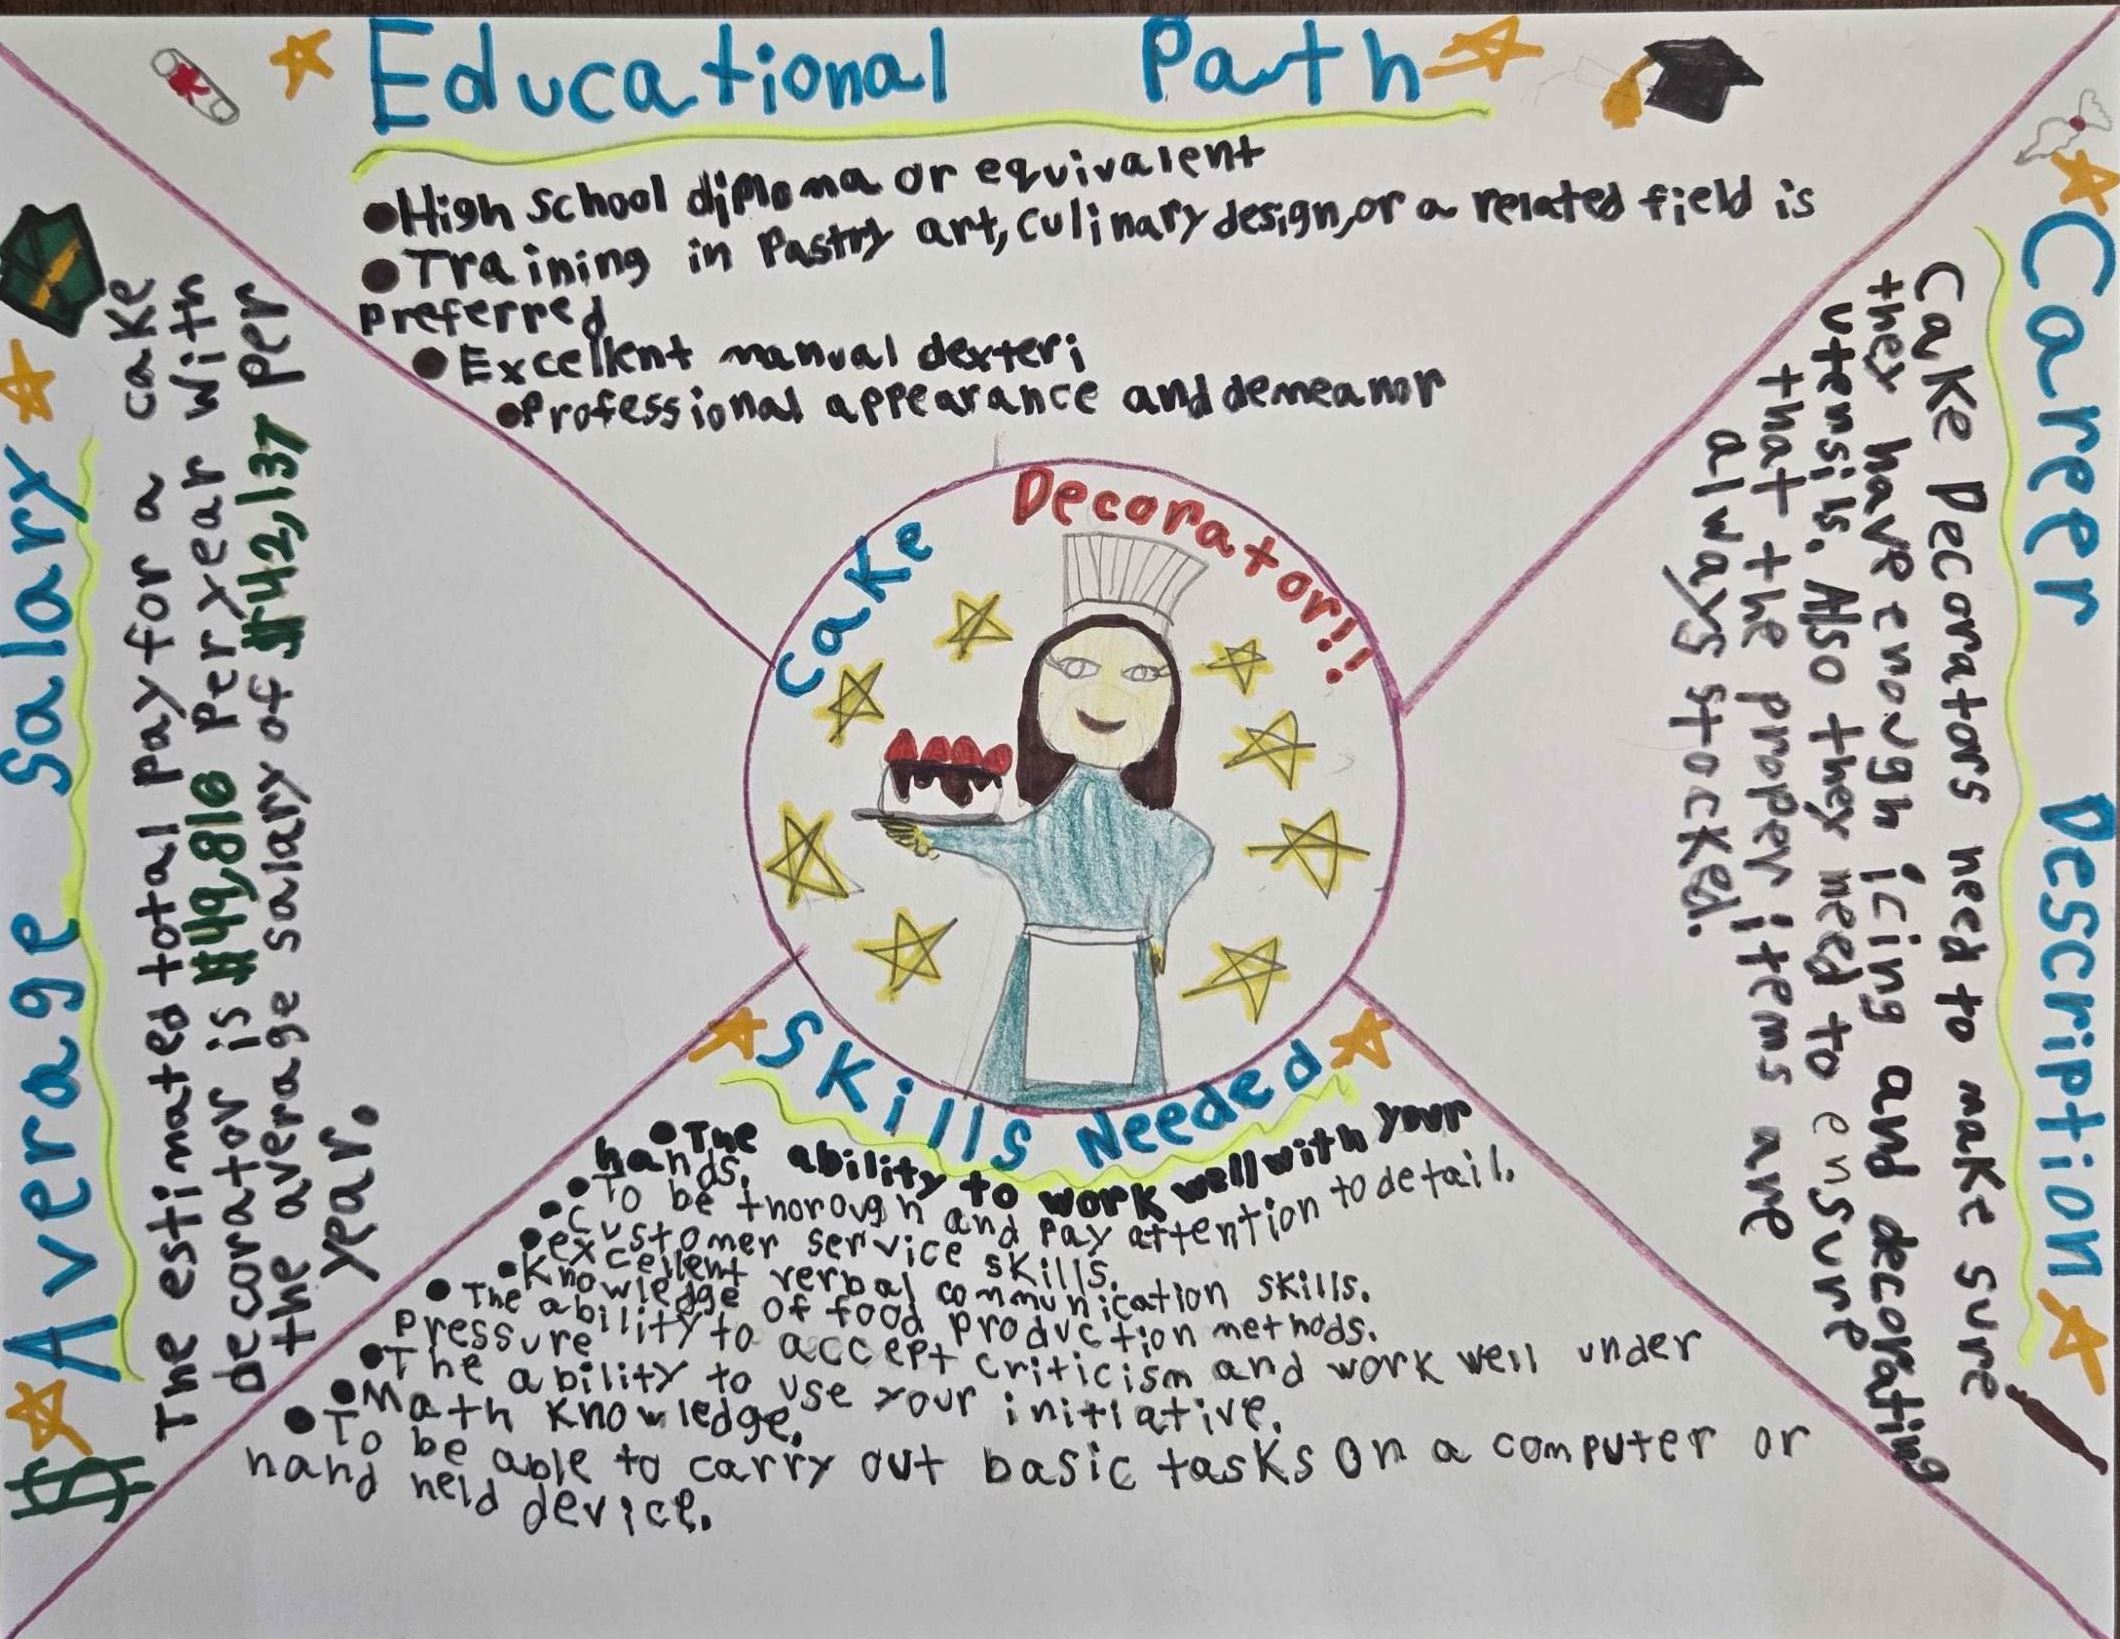 Educational Path
•High School diploma or equivalent
•Training in Pastry art, culinary design, or a related field is
preferred
•Excellent manual dexteri
•Professional appearance and demeanor
Cake Decorator!!
Average Salary
The estimated total pay for a cake
decorator is $49,816 per year with
the average salary of $42,137 per
year.
Career Description
Cake Decorators need to make sure
they have enough icing and decorating
utensils. Also they need to ensure
that the proper items are
always stocked.
Skills Needed
•The ability to work well with your
hands.
•To be thorough and pay attention to detail.
•customer service skills.
•excellent verbal communication skills.
•Knowledge of food production methods.
•The ability to accept criticism and work well under
pressure
•The ability to use your initiative.
•Math knowledge.
•To be able to carry out basic tasks on a computer or
hand held device.